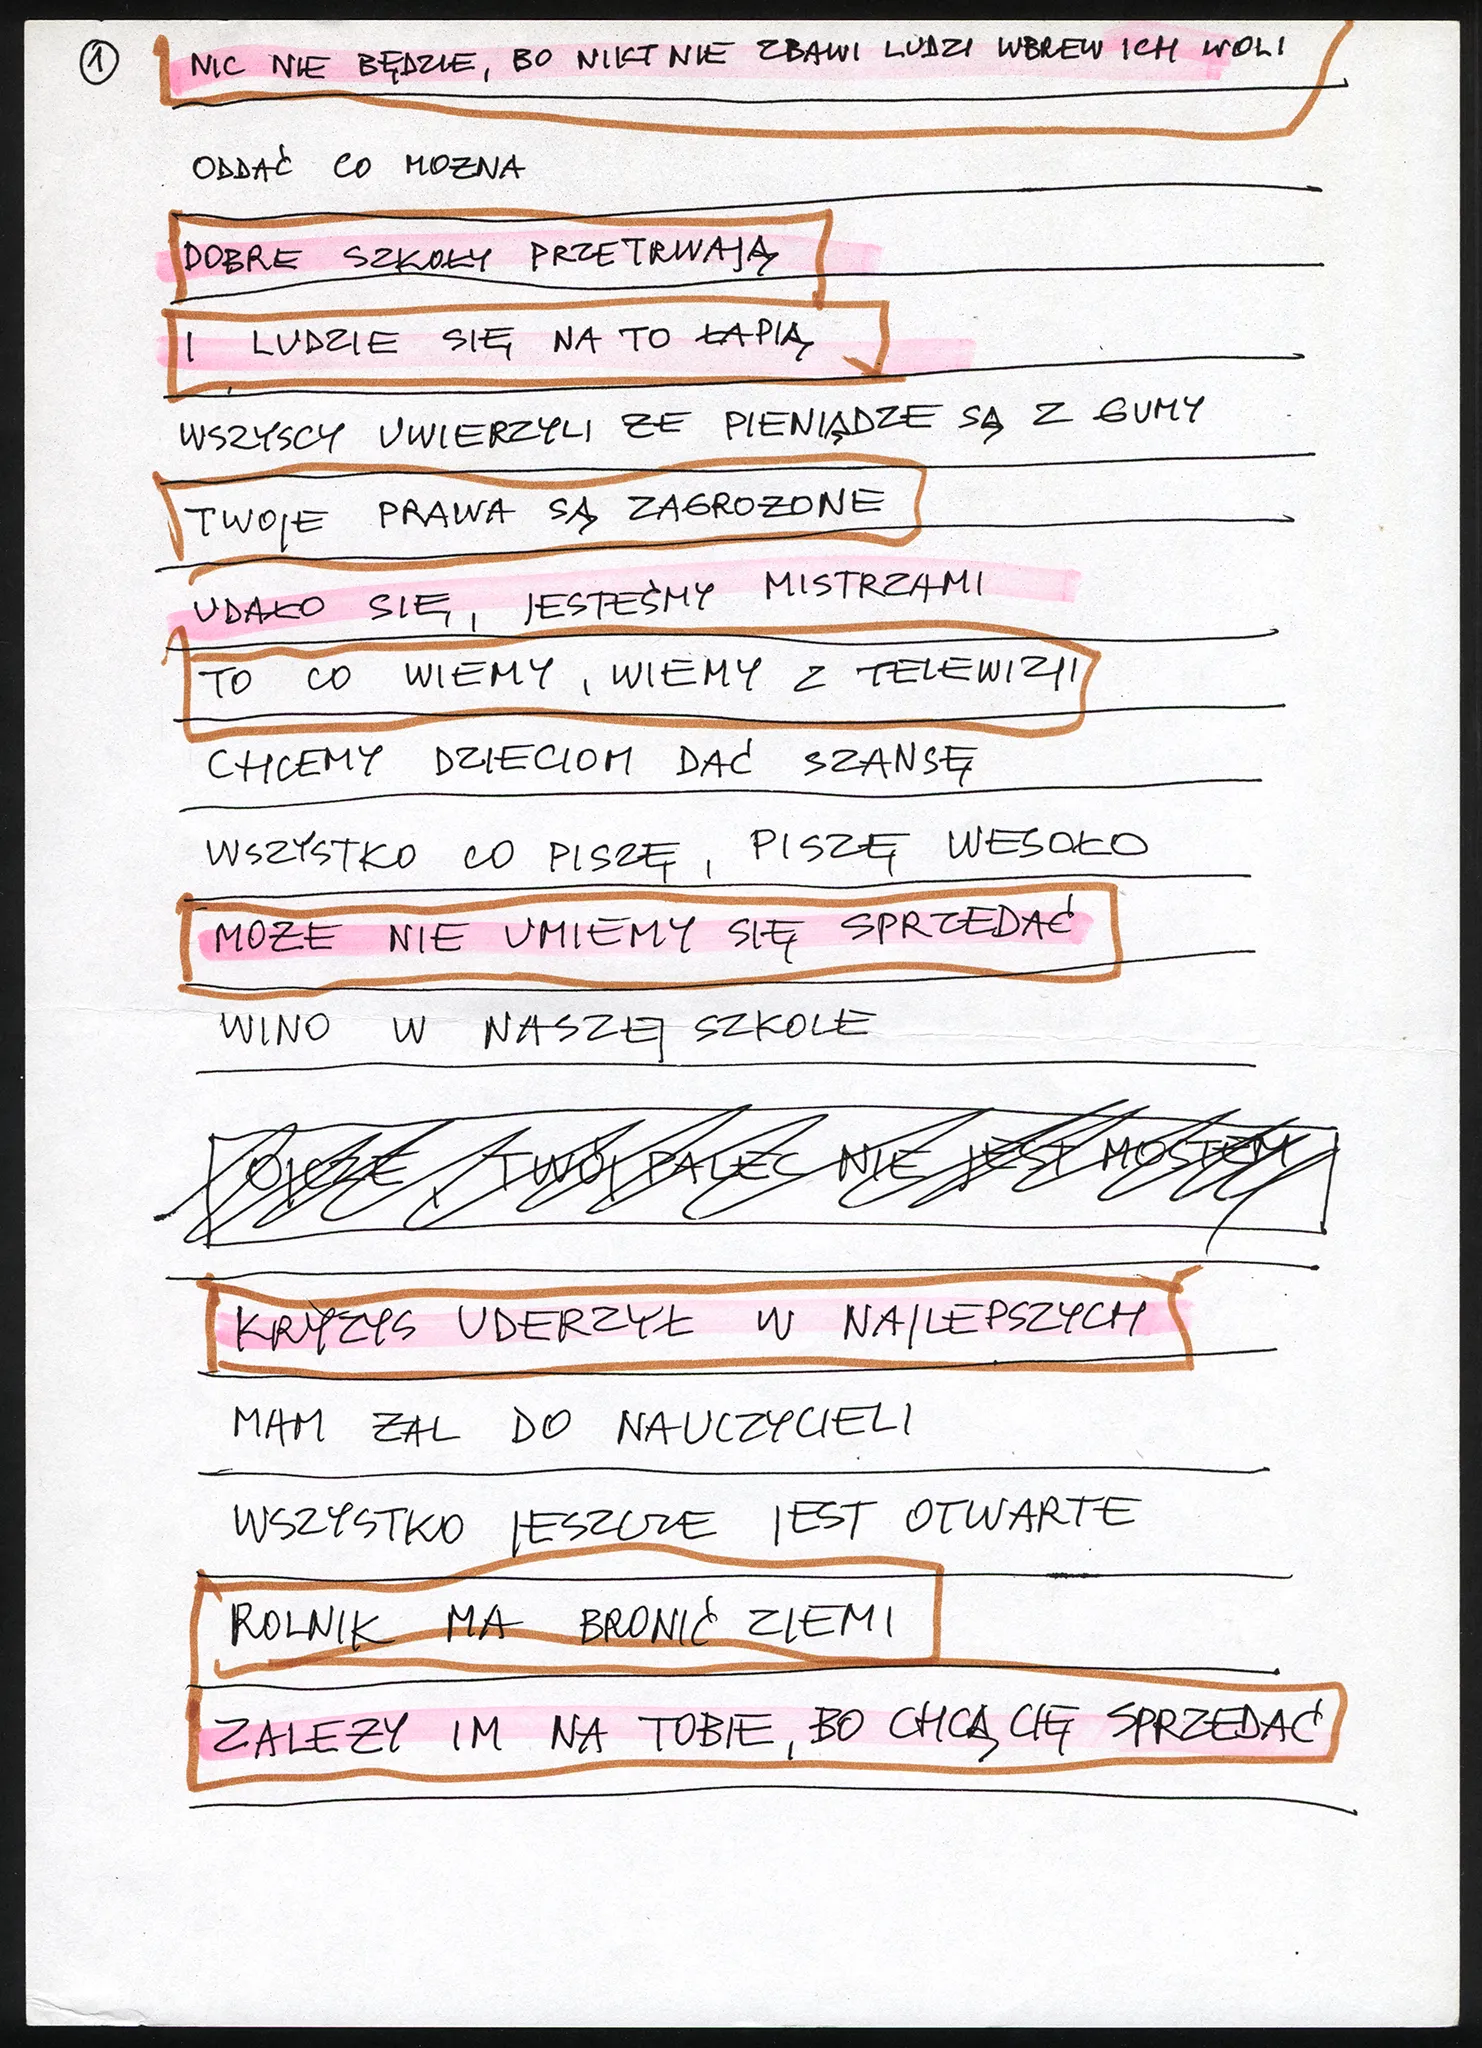 1
NIC NIE BĘDZIE, BO NIKT NIE ZBAWI LUDZI WBREW ICH WOLI
ODDAĆ CO MOZNA
DOBRE SZKOŁY PRZETRWAJĄ
I LUDZIE SIĘ NA TO ŁAPIĄ
WSZYSCY UWIERZYLI ZE PIENIĄDZE SĄ Z GUMY
TWOJE PRAWA SĄ ZAGROZONE
UDAŁO SIĘ, JESTEŚMY MISTRZAMI
TO CO WIEMY, WIEMY Z TELEWIZJI
CHCEMY DZIECIOM DAĆ SZANSĘ
WSZYSTKO CO PISZĘ, PISZĘ WESOŁO
MOZE NIE UMIEMY SIĘ SPRZEDAĆ
WINO W NASZEJ SZKOLE
OJCZE, TWÓJ PALEC NIE JEST MOSTEM
KRYZYS UDERZYŁ W NAJLEPSZYCH
MAM ZAL DO NAUCZYCIELI
WSZYSTKO JESZCZE JEST OTWARTE
ROLNIK MA BRONIĆ ZIEMI
ZALEZY IM NA TOBIE, BO CHCĄ CIĘ SPRZEDAĆ